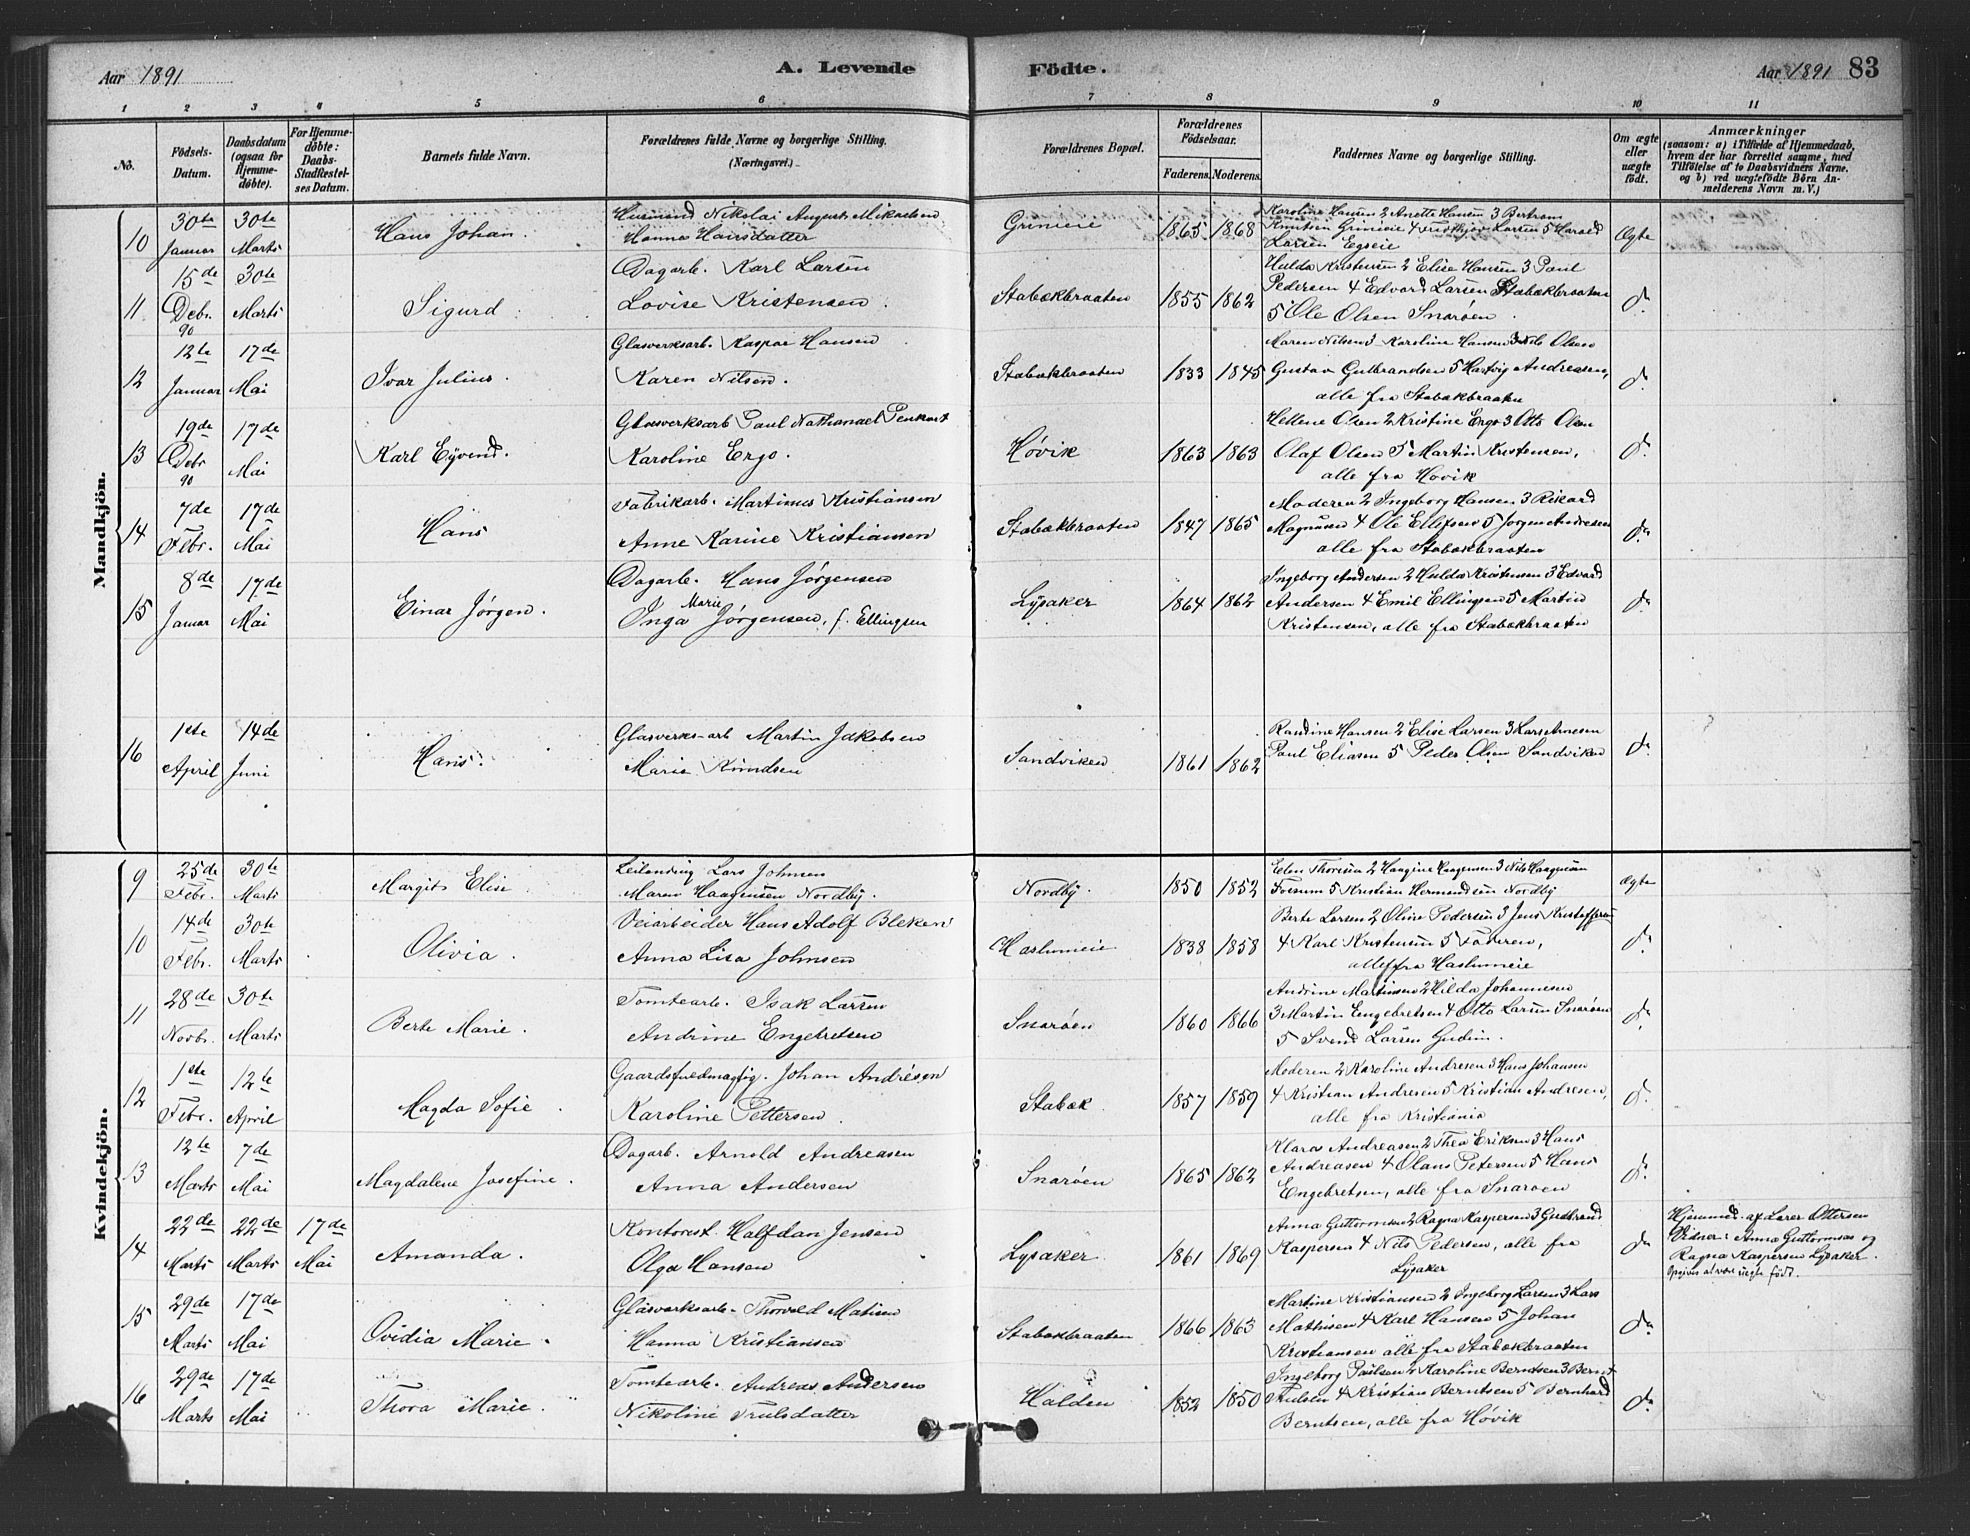 Aar 1891
A. Levende
Födte.
Aar 1891 83
1 2 3 4 5 6 7 8 9 10 11
No.
Födsels-
Datum.
Daabsdatum
(ogsaa for
Hjemme-
döbte).
For Hjemme-
döbte:
Daabs-
Stadfæstel-
ses Datum.
Barnets fulde Navn.
Forældrenes fulde Navne og borgerlige Stilling.
(Næringsvei.)
Forældrenes Bopæl.
Forældrenes
Födselsaar.
Faderens. Moderens.
Faddernes Navne og borgerlige Stilling.
Om ægte
eller
uægte
födt.
Anmærkninger
(saasom: a) i Tilfælde af Hjemmedaab,
hvem der har forrettet samme, med
Tilföielse af to Daabsvidners Navne.
og b) ved uægtefödte Börn An-
melderens Navn m. V.)
Mandkjön.
10
30te
Januar
30te
Marts
Hans Johan.
Husmand Nikolai August Mikaelsen
Hanna Hansdatter
Grinieie
1865 1868
Karoline Hansen 2 Anette Hansen 3 Bertram
Knutsen Grinieie 4 Fridthjov Larsen 5 Harald
Larsen Egseie
Ægte
11
15de
Debr.
90
30te
Marts
Sigurd
Dagarb. Karl Larsen
Lovise Kristensen
Stabækbraaten
1855 1862
Hulda Kristensen 2 Elise Hansen 3 Paul
Pedersen 4 Edvard Larsen Stabækbraaten
5 Ole Olsen Snarøen
do
12
12te
Januar
17de
Mai
Ivar Julius.
Glasverksarb. Kaspar Hansen
Karen Nilsen.
Stabækbraaten
1833 1845
Maren Nilsen 2 Karoline Hansen 3 Nils Olsen
Gustav Gulbrandsen 5 Hartvig Andreasen,
alle fra Stabækbraaten
do
13
19de
Debr
90
17de
Mai
Karl Eyvend.
Glasverksarb Paul Nathanael Penkert
Karoline Ergo.
Høvik
1863 1863
Hellene Olsen 2 Kristine Ergo 3 Otto Olsen
Olaf Olsen 5 Martin Kristensen,
alle fra Høvik
do
14
7de
Febr.
17de
Mai
Hans
Fabrikarb. Martinus Kristiansen
Anne Karine Kristiansen
Stabækbraaten
1847 1865
Moderen 2 Ingeborg Hansen 3 Rikard
Magnusen 4 Ole Ellefsen 5 Jørgen Andresen
alle fra Stabækbraaten
do
15
8de
Januar
17de
Mai
Einar Jørgen.
Dagarb. Hans Jørgensen
Marie
Inga Jørgensen, f. Ellingsen
Lysaker
1864 1862
Ingeborg Andersen 2 Hulda Kristensen 3 Edvard
Andersen 4 Emil Ellingsen 5 Martin
Kristensen, alle fra Stabækbraaten
do
16
1ste
April
14de
Juni
Hans.
Glasverks-arb Martin Jakobsen
Marie Knudsen
Sandviken
1861 1862
Randine Hansen 2 Elise Larsen 3 Lars Arnesen
Paul Eliasen 5 Peder Olsen Sandviken
do
Kvindekjön.
9
25de
Febr.
30te
Marts
Margit Elise
Leilending Lars Johnsen
Maren Haagensen Nordby.
Nordby
1850 1852
Elen Thoresen 2 Haagine Haagensen 3 Nils Haagensen
Fossum 5 Kristian Hermandsen Nordby
ægte
10
14de
Febr.
30te
Marts
Olivia.
Veiarbeider Hans Adolf Bleken
Anna Lisa Johnsen
Haslumeie
1838 1858
Berte Larsen 2 Oline Pedersen 3 Jens Kristoffersen
4 Karl Kristensen 5 Faderen,
alle fra Haslumeie
do
11
28de
Novbr.
30te
Marts
Berte Marie.
Tomtearb. Isak Larsen
Andrine Engebretsen
Snarøen
1860 1866
Andrine Martinsen 2 Hilda Johannesen
3 Martin Engebretsen 4 Otto Larsen Snarøen
5 Svend Larsen
do
12
1ste
Febr.
12te
April
Magda Sofie
Gaardsfuldmægtig. Johan Andresen
Karoline Pettersen
Stabæk
1857 1859
Moderen 2 Karoline Andresen 3 Hans Johansen
4 Kristian Andresen 5 Kristian Andresen,
alle fra Kristiania
do
13
12te
Marts
7de
Mai
Magdalene Josefine.
Dagarb. Arnold Andreasen
Anna Andersen
Snarøen
1865 1862
Klara Andreasen 2 Thea Eriksen 3 Hans
Andreasen 4 Olaus Petersen 5 Hans
Engebretsen, alle fra Snarøen
do
14
22de
Marts
22de
Marts
17de
Mai
Amanda.
Kontorist Halfdan Jensen
Olga Hansen
Lysaker
1861 1869
Anna Guttormsen 2 Ragna Kaspersen 3 Gudbrand
Kaspersen 4 Nils Pedersen, alle fra
Lysaker
do
Hjemmed. af Lærer Ottersen
Vidner: Anna Guttormsen og
Ragna Kaspersen Lysaker.
Opgives at være uegte født.
15
29de
Marts
17de
Mai
Ovidia Marie.
Glasverksarb. Thorvald Matisen
Hanna Kristiansen
Stabækbraaten
1866 1863
Martine Kristiansen 2 Ingeborg Larsen 3 Lars
Mathisen 4 Karl Hansen 5 Johan
Kristiansen alle fra Stabækbraaten
do
16
29de
Marts
17de
Mai
Thora Marie.
Tomtearb. Andreas Andersen
Nikoline Trulsdatter
Halden
1852 1850
Ingeborg Paulsen 2 Karoline Berntsen 3 Bernt
Trulsen 4 Kristian Berntsen 5 Bernhard
Berntsen, alle fra Høvik
do